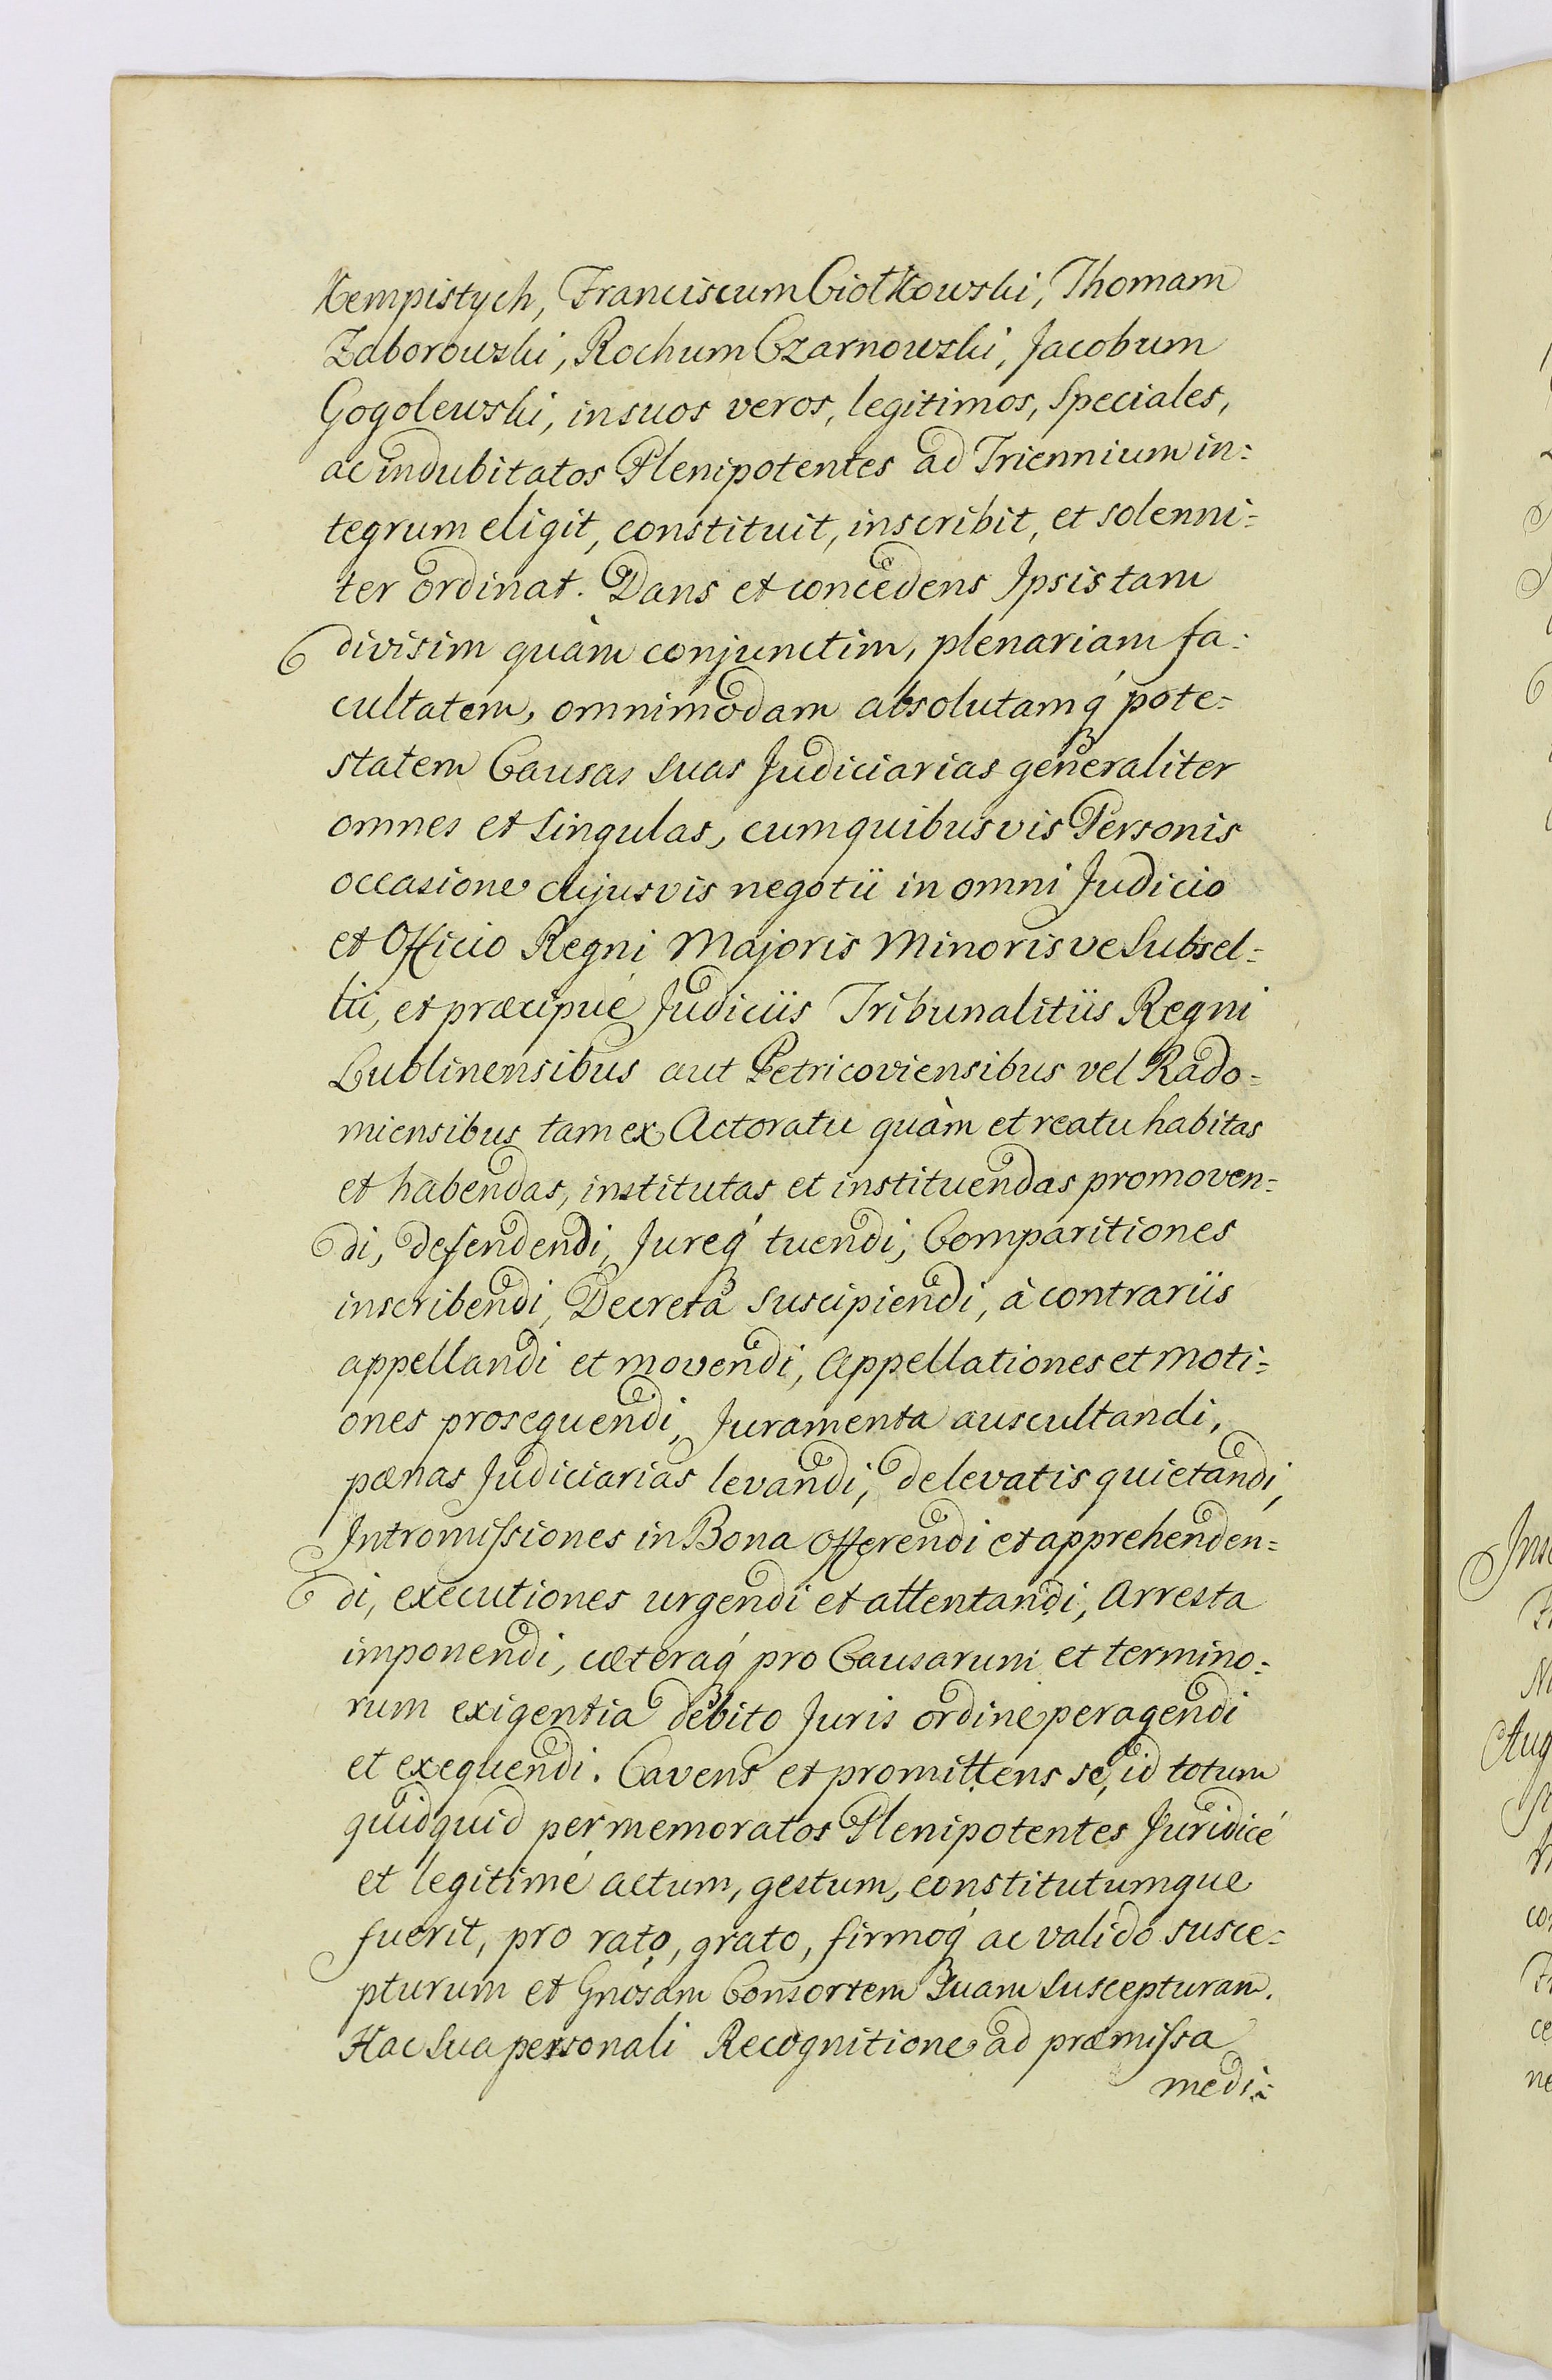 Kempistych, Franciscum Ciołkowski, Thomam
Zaborowski, Rochum Czarnowski, Jacobum
Gogolewski, in suos veros, legitimos, Speciales,
ac indubitatos Plenipotentes ad Triennium in=
tegrum eligit, constituit, inscribit, et solenni=
ter ordinat. Dans et concedens Ipsis tam
divisim quàm conjunctim, plenariam fa=
cultatem, omnimodam absolutamq́ pote=
statem Causas suas Judiciarias generaliter
omnes et singulas, cum quibusvis Personis
occasione cujusvis negotii in omni Judicio
et Officio Regni Majoris Minorisve Subsel=
lii, et præcipué Judiciis Tribunalitiis Regni
Lublinensibus aut Petricoviensibus vel Rado=
miensibus tam ex Actoratu quàm et reatu habitas
et habendas, institutas et instituendas promoven=
di, defendendi, Jureq́ tuendi, Comparitiones
inscribendi, Decreta suscipiendi, à contrariis
appellandi et movendi, Appellationes et moti=
ones prosequendi, Juramenta auscultandi,
pœnas Judiciarias levandi, de levatis quietandi,
Intromissiones in Bona offerendi et apprehenden=
di, executiones urgendi et attentandi, Arresta
imponendi, cæteraq́ pro Causarum et termino=
rum exigentia debito Juris ordine peragendi
et exequendi. Cavens et promittens se, id totum
quidquid per memoratos Plenipotentes Juridicé
et legitimé actum, gestum, constitutumque
fuerit, pro rato, grato, firmoq́ ac valido susce=
pturum et Gnosam Consortem Suam suscepturam.
Hac Sua personali Recognitione ad præmissa
medi=